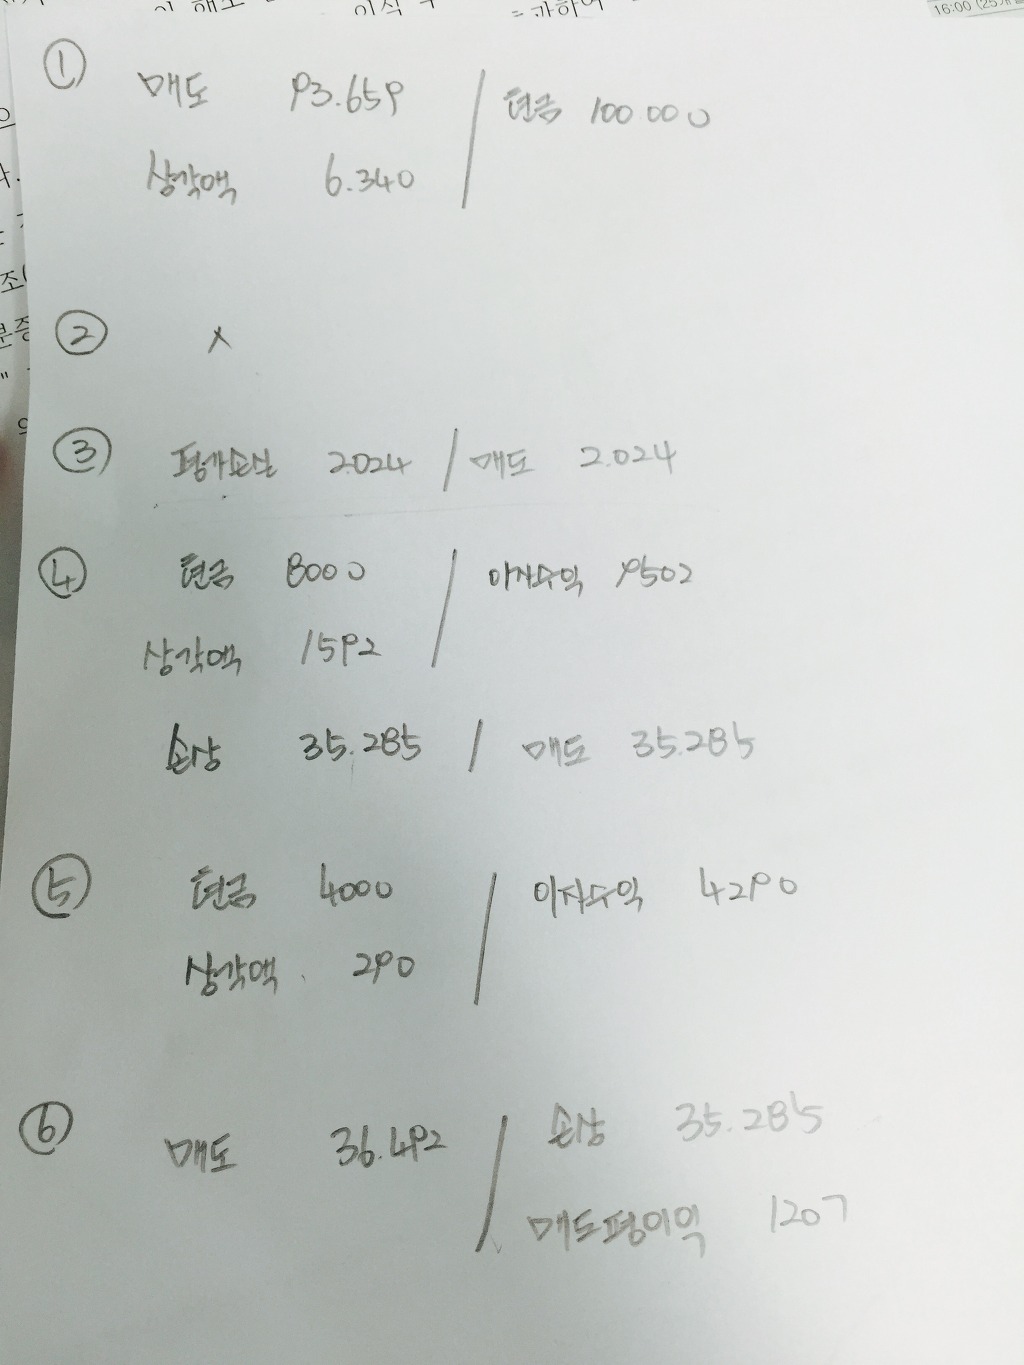 16:00
① 매도 93.659 / 현금 100.000
상각액 6.340
② x
③ 평가손실 2.024 / 매도 2.024
④ 현금 8000 / 이자수익 9502
상각액 1592
손상 35.285 / 매도 35.285
⑤ 현금 4000 / 이자수익 4290
상각액 290
⑥ 매도 36.492 / 손상 35.285
매도평이익 1207